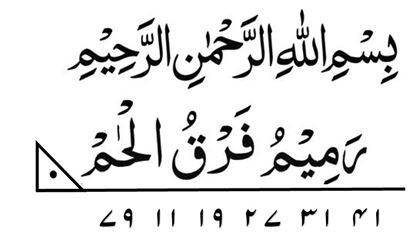 بِسْمِ اللهِ الرَّحْمٰنِ الرَّحِيْمِ
رَمِيْمُ فَرْقُ الْحٰمْ
۴۱ ۳۱ ۲۷ ۱۹ ۱۱ ۷۹